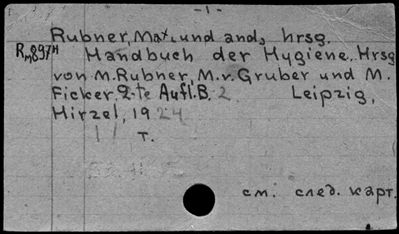 -1-
Rubner, Max. und and., hrsg.
R 897H Handbuch der Hygiene. Hrsg
von M. Rubner, M. v. Gruber und M.
Ficker. 2-te Aufl. B. 2 Leipzig,
Hirzel, 1924
т.
см. след. карт.